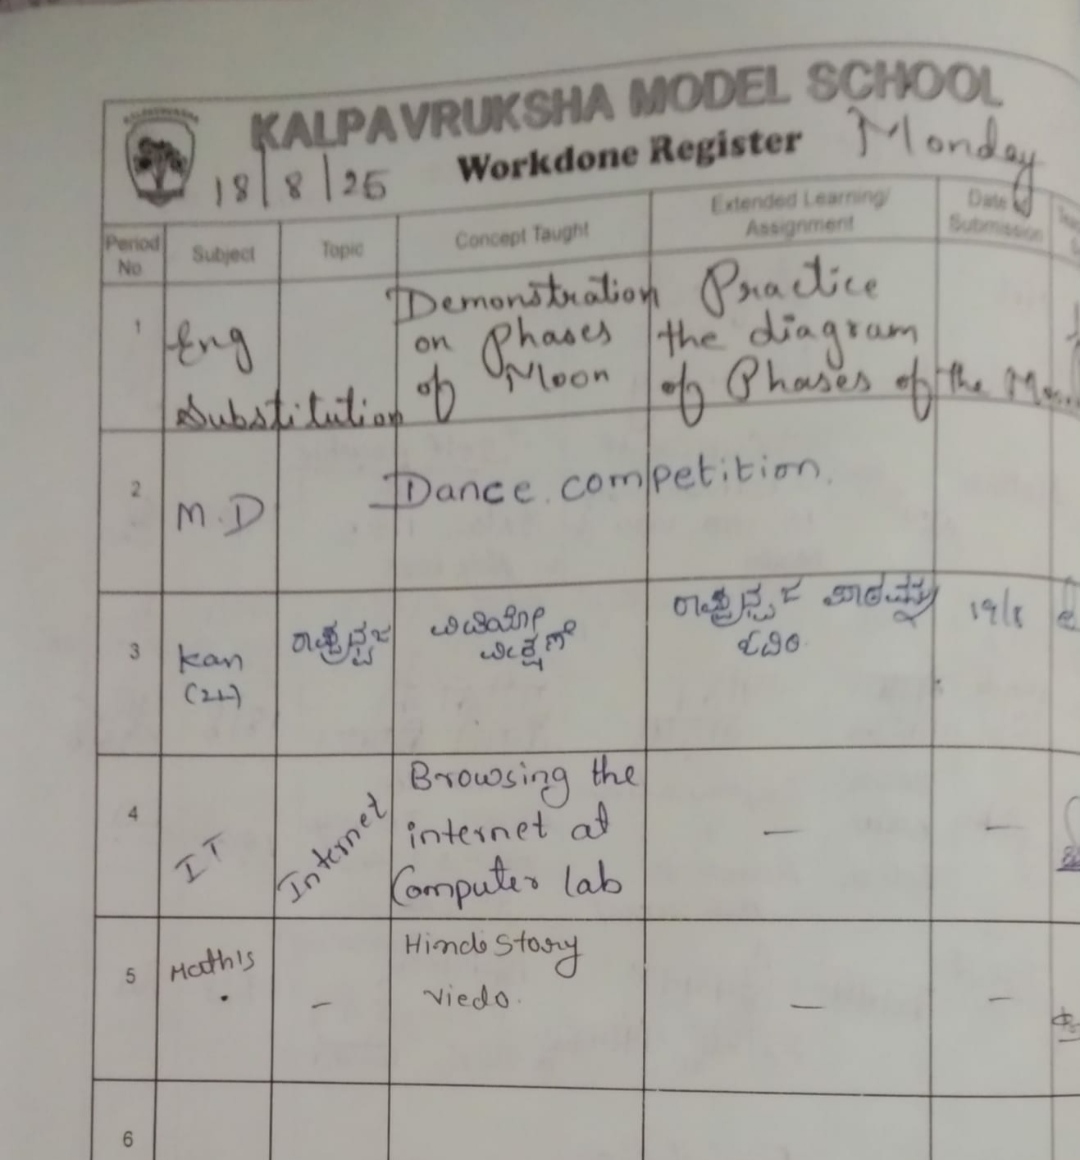 KALPAVRUKSHA MODEL SCHOOL
18/8/25 Workdone Register Monday
Period No Subject Topic Concept Taught Extended Learning/ Assignment Date of Submission
1 Eng Substitution
Demonstration
on Phases
of Moon
Practice
the diagram
of Phases of the
2 M.D Dance competition.
3 Kan
(2L)
ರಾಷ್ಟ್ರಧ್ವಜ
ವಿಡಿಯೋ
ವೀಕ್ಷಣೆ
ರಾಷ್ಟ್ರಧ್ವಜ
19/8
4 IT Internet
Browsing the
internet at
Computer lab
— —
5 Maths —
Hindi Story
Viedo.
— —
6